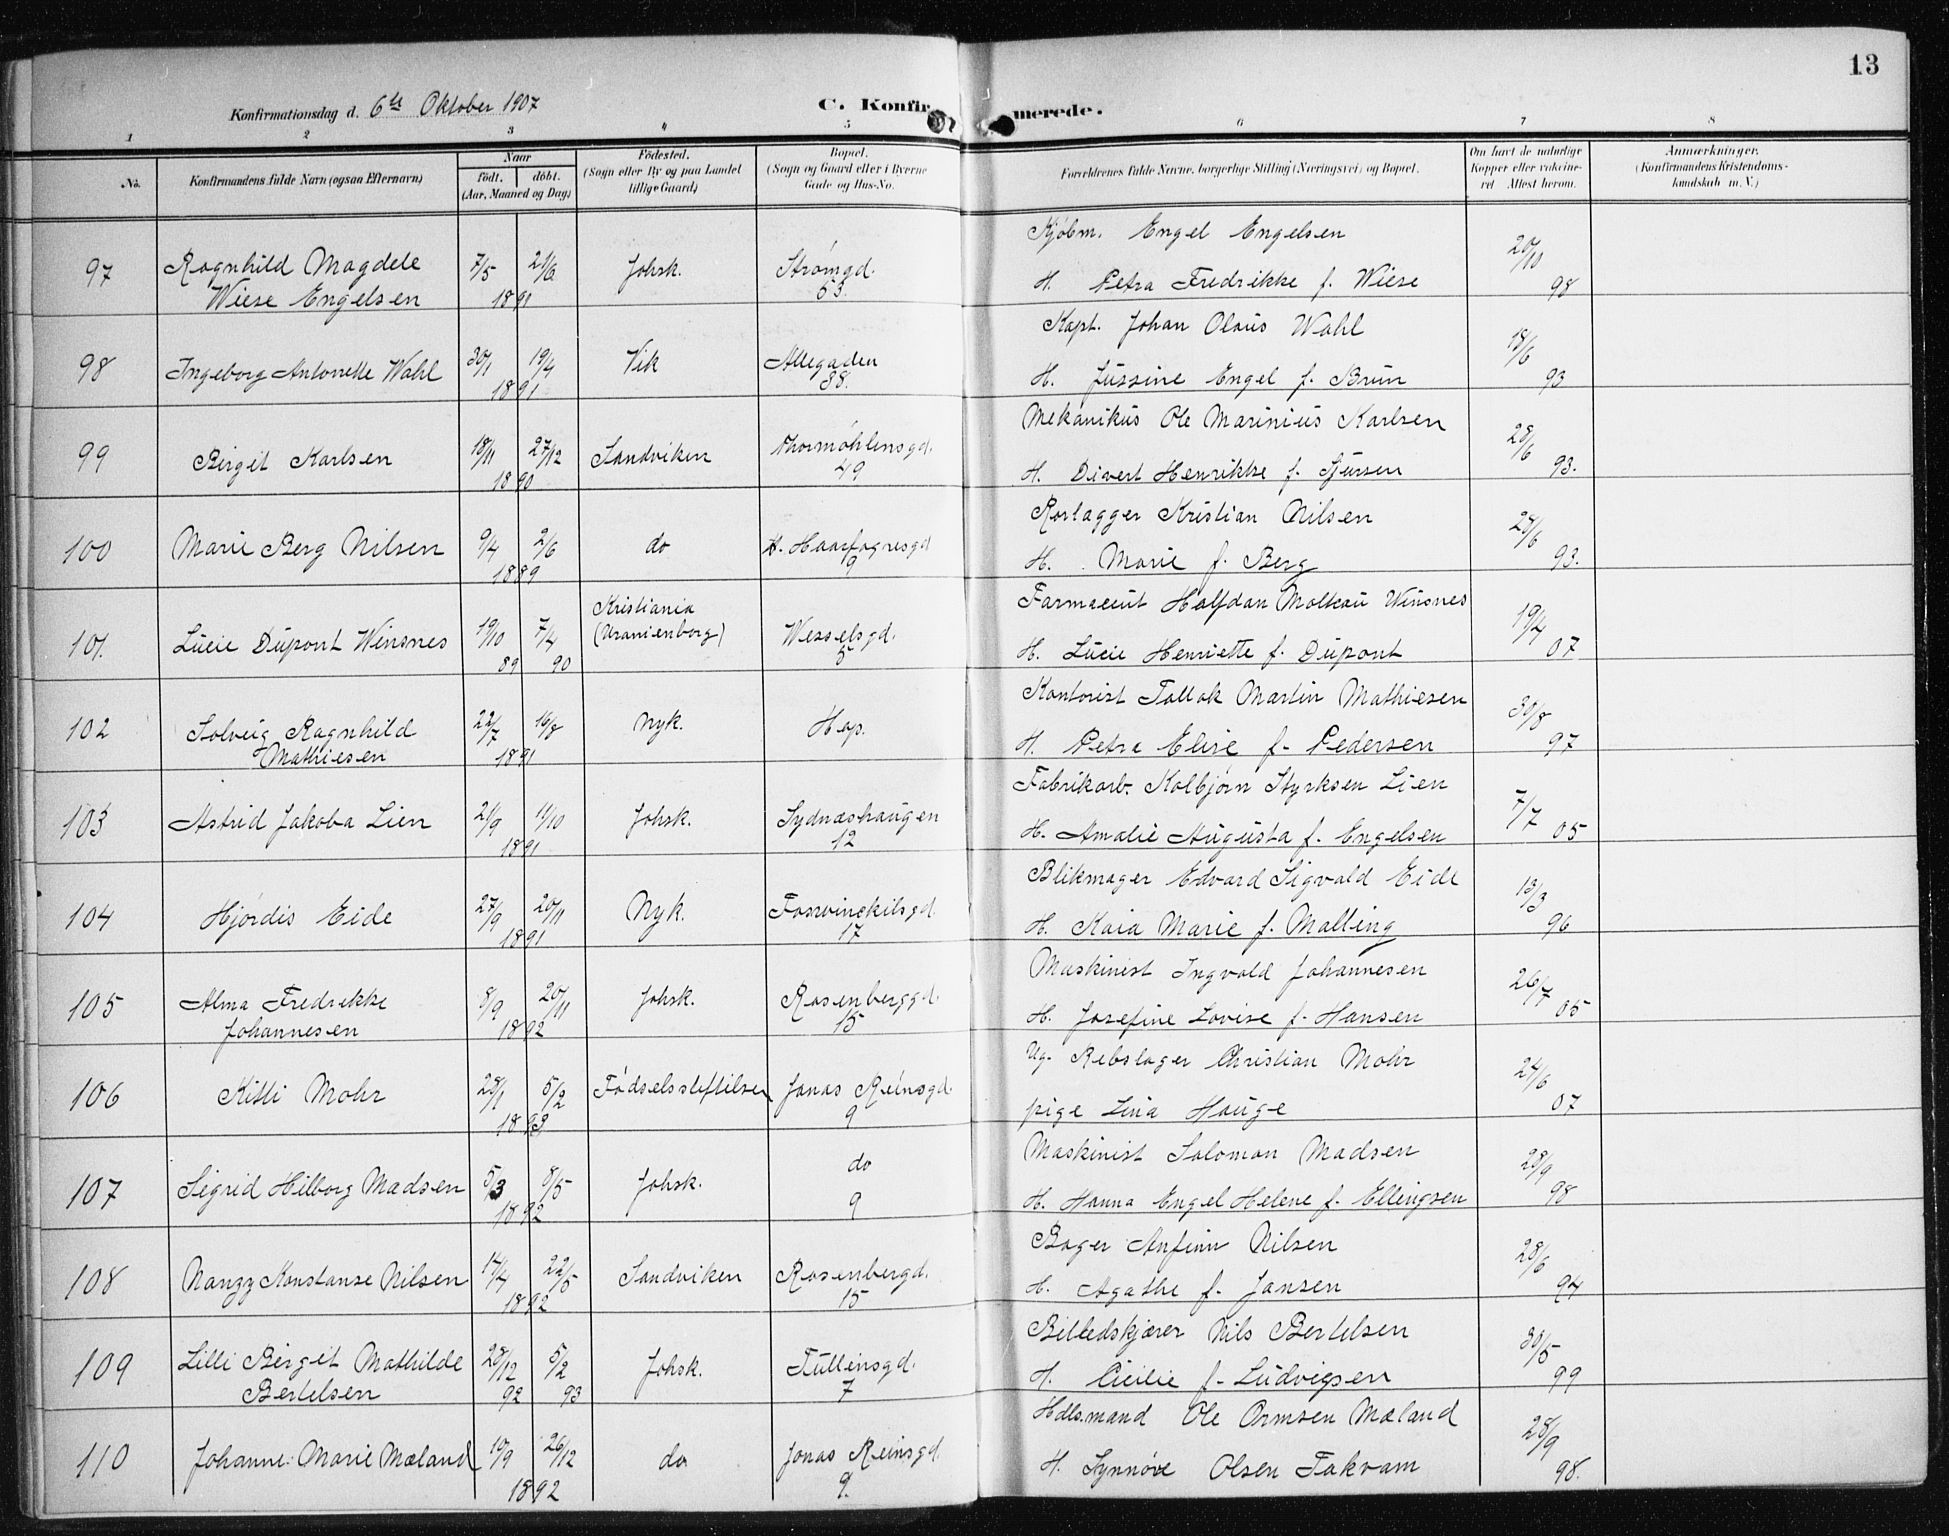 13
Konfirmationsdag d. 6te Oktober 1907
C. Konfirmerede.
1 2 3 4 5 6 7 8
No.
Konfirmandens fulde Navn (ogsaa Efternavn)
Naar
født. døbt.
(Aar, Maaned og Dag)
Fødested.
(Sogn eller By og paa Landet
tillige Gaard)
Bopæl.
(Sogn og Gaard eller i Byerne
Gade og Hus-No.
Forældrenes fulde Navne, borgerlige Stilling (Næringsvei) og Bopæl.
Om havt de naturlige
Kopper eller vakcine-
ret Attest herom.
Anmærkninger.
(Konfirmandens Kristendoms-
kundskab m. V.)
Kjøbm. Engel Engelsen
97 Ragnhild Magdele 7/5 21/6 Johsk. Strømgd. 20/10
Wiese Engelsen 1891 53. H. Petra Fredrikke f. Wiese 98
Kapt. Johan Olaus Wahl
98 Ingeborg Antonette Wahl 30/1 19/4 Vik Allegaden 18/6
1891 38. H. Jussine Engel f. Brun 93
Mekanikus Ole Marinius Karlsen
99 Birgit Karlsen 18/11 27/12 Sandviken Thormøhlensgd. 28/6
1890 49 H. Divert Henrikke f. Sjursen 93.
Rørlægger Kristian Nilsen
100 Marie Berg Nilsen 9/4 2/6 do H. Haarfagresgd 28/6
1889 9 H. Marie f. Berg 93.
Kristiania Farmaceut Halfdan Moltzau Winsnes
101. Lucie Dupont Winsnes 19/10 7/4 (Uranienborg) Wesselsgd. 19/4
89 90 5 H. Lucie Henriette f. Dupont 07
Kontorist Tallak Martin Mathiesen
102 Solveig Ragnhild 22/7 16/8 Nyk. Hop. 30/8
Mathiesen 1891 H. Petra Elise f. Pedersen 97
Fabrikarb. Kolbjørn Styrksen Lien
103 Astrid Jakoba Lien 21/9 11/10 Johsk. Sydnæshaugen 7/7
1891 12 H. Amalie Augusta f. Engelsen 05
Blikmager Edvard Sigvald Eide
104 Hjørdis Eide 27/9 20/11 Nyk. Fosswinckelsgd. 13/3
1891 17 H. Kaia Marie f. Malling 96
Maskinist Ingvald Johannesen
105 Alma Fredrikke 8/9 20/11 Johsk. Rosenberggd. 26/7
Johannesen 1892 15 H. Josefine Lovise f. Hansen 05
Ug. Rebslager Christian Mohr
106 Kitti Mohr 28/1 5/2 Fødselsstiftelsen Jonas Reinsgd. 24/6
1893 9 pige Lina Hauge 07
do Maskinist Salomon Madsen
107 Sigrid Hilborg Madsen 5/3 8/5 Johsk. 28/9
1892 9 H. Hanna Engel Helene f. Ellingsen 98
Bager Anfinn Nilsen
108 Nanzy Konstanse Nilsen 14/4 22/5 Sandviken Rosenbergd. 28/6
1892 15 H. Agathe f. Jansen 94
Billedskjærer Nils Bertelsen
109 Lilli Birgit Mathilde 28/12 5/2 Johsk. Tullinsgd. 30/5
Bertelsen 92 93 7 H. Cicilie f. Ludvigsen 99
Hdlsmand Ole Ormsen Mæland
110 Johanne Marie Mæland 10/9 26/12 do Jonas Reinsgd. 28/9
1892 9. H. Synnøve Olsen Takvam 98.